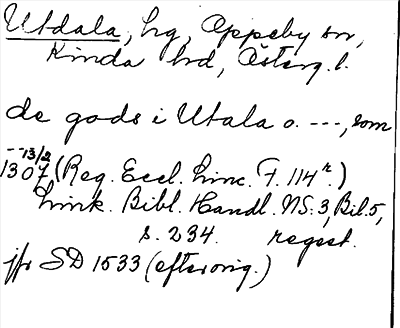 Utdala, hg, Oppeby sn,
Kinda hd, Österg. l.
de gods i Utala o. ---, som
--13/2
1307 (Reg. Eccl. Linc. F. 114r.)
Link. Bibl. Handl. NS. 3, Bil. 5,
s. 234. regest.
jfr SD 1533 (efter orig.)